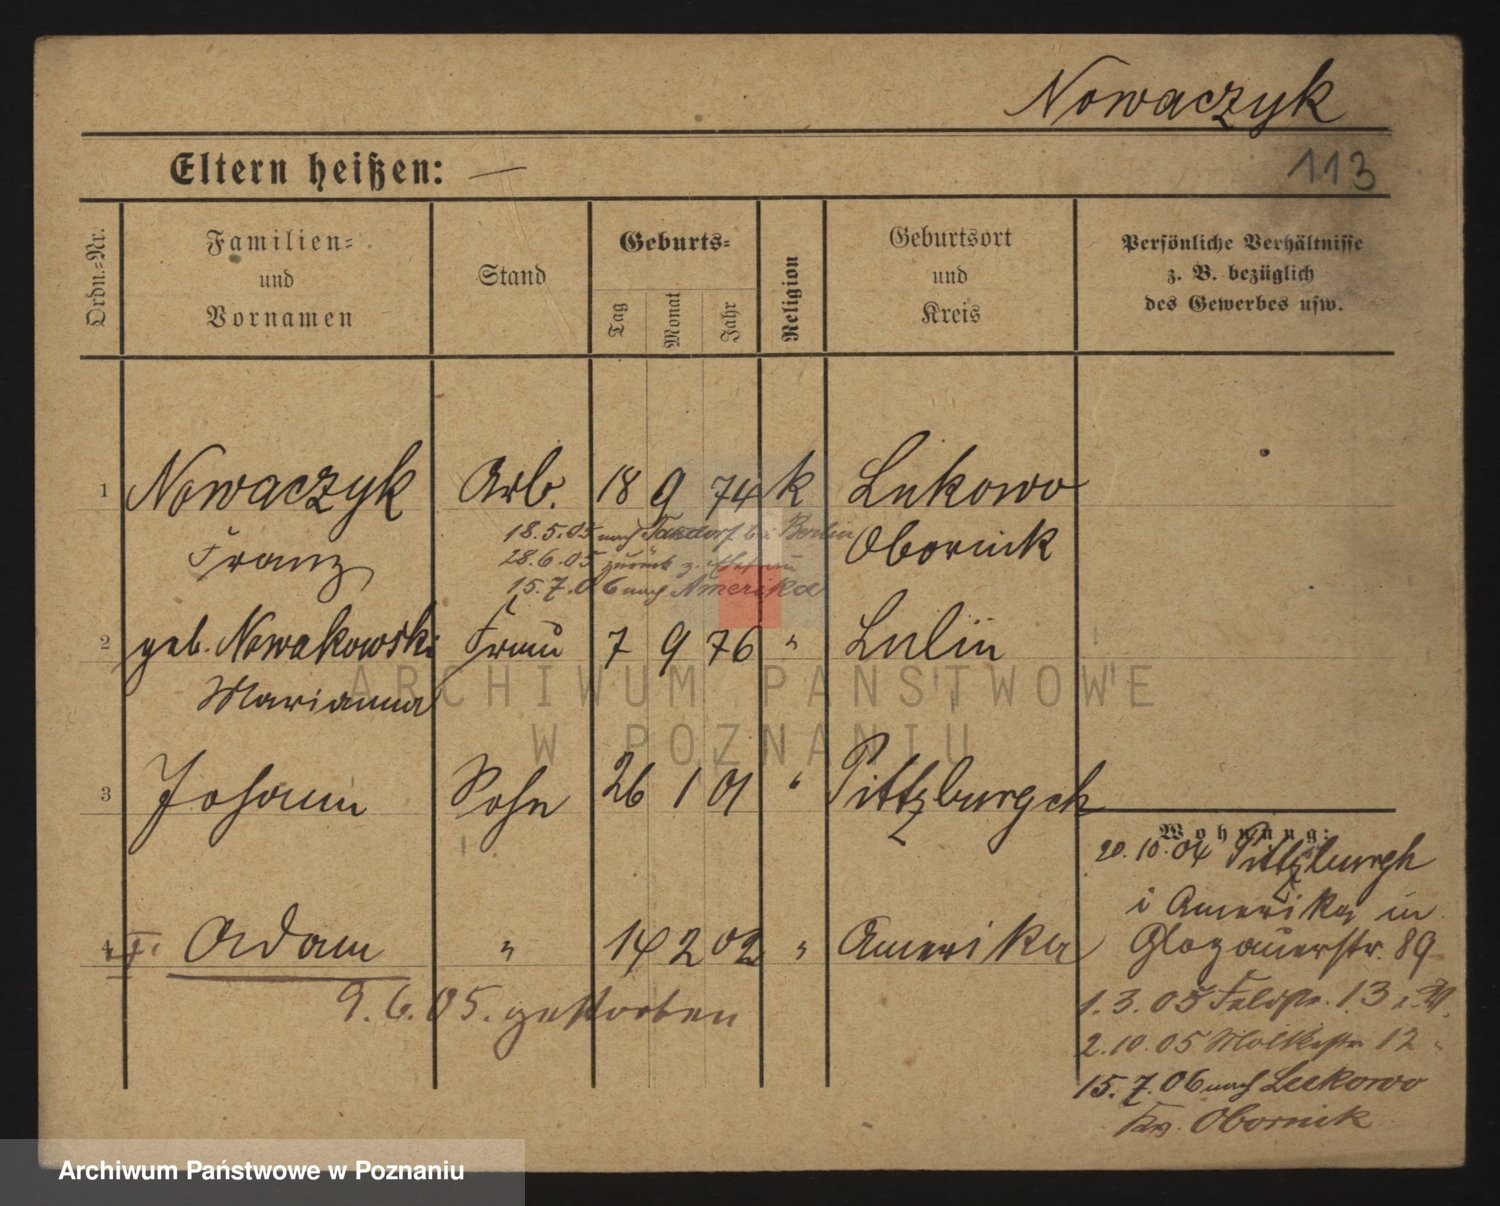 Nowaczyk
Eltern heißen: —
113
Ordn.-Nr.
Familien-
und
Vornamen
Stand
Geburts-
Tag
Monat
Jahr
Religion
Geburtsort
und
Kreis
Persönliche Verhältnisse
z. B. bezüglich
des Gewerbes usw.
1 Nowaczyk Arb. 18 9 74 k Lukowo
Franz Obornik
18.5.05 nach Tasdorf bei Berlin
28.6.05 zurück
15.7.06 nach Amerika
2 geb. Nowakowski Frau 7 9 76 " Lulin
Marianna
ARCHIWUM PAŃSTWOWE
W POZNANIU
3 Johann Sohn 26 1 01 " Pittzburgch
4 Adam " 14 2 02 " Amerika
9.6.05. gestorben
Wohnung:
20.10.04 Pittzburgh
i Amerika in
Glogauerstr. 89
1.3.05 Feldstr. 13
2.10.05 Moltkestr 12
15.7.06 nach Lukowo
Kr. Obornik
Archiwum Państwowe w Poznaniu